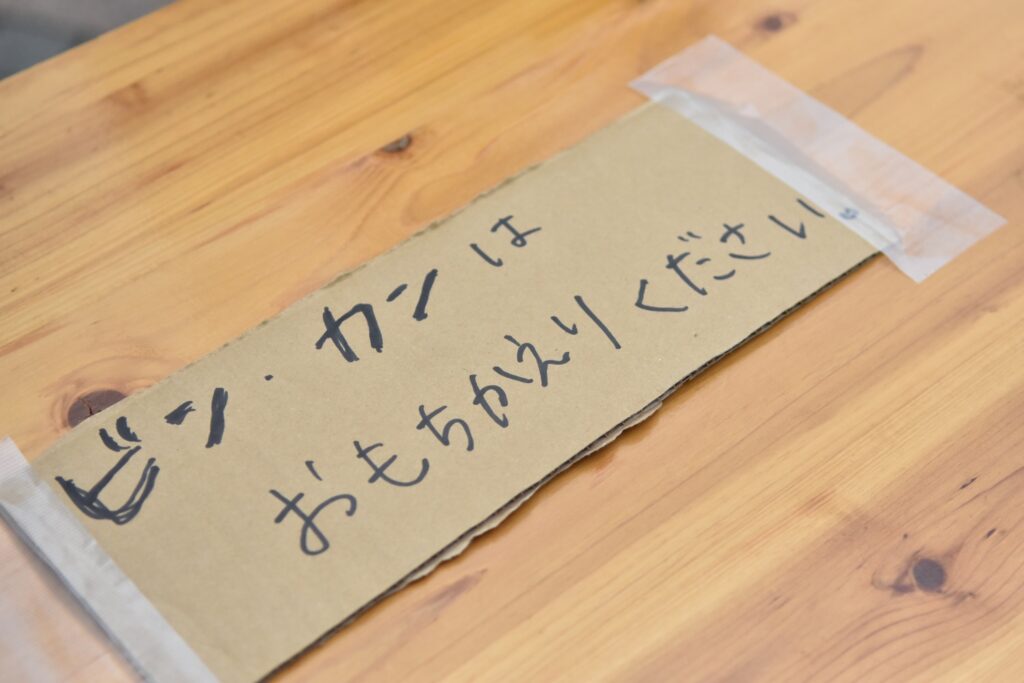 ビン・カンは
おもちかえりください